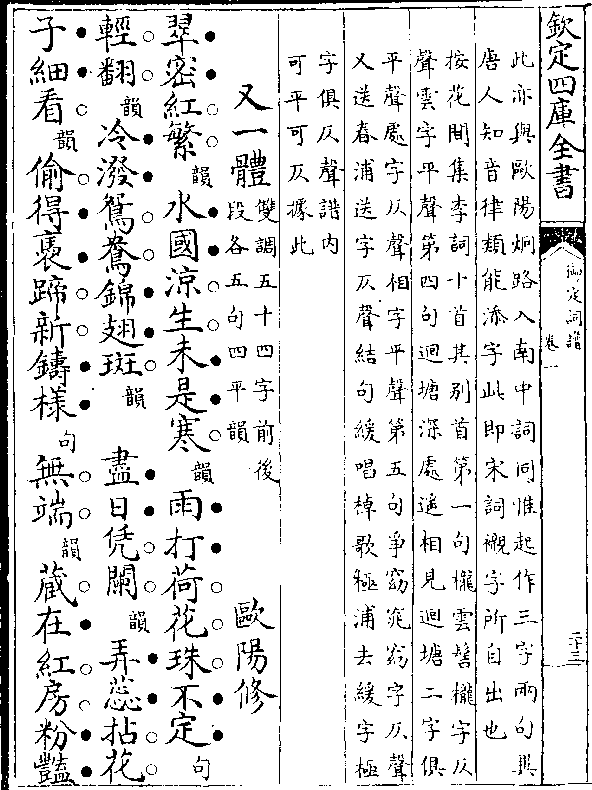 欽定四庫全書
御定詞譜
卷一
二十三
此亦與歐陽烱路入南中詞同惟起作三字兩句異
唐人知音律類能添字此即宋詞襯字所自出也
按花間集李詞十首其別首第一句櫳雲髻櫳字仄
聲雲字平聲第四句迴塘深處遙相見迴塘二字俱
平聲處字仄聲相字平聲第五句爭窈窕窈字仄聲
又送春浦送字仄聲結句緩唱棹歌極浦去緩字極
字俱仄聲譜内
可平可仄據此
又一體 雙調五十四字前後
段各五句四平韻 歐陽修
翠密紅繁韻水國涼生未是寒韻雨打荷花珠不定句
輕翻韻冷潑鴛鴦錦翅斑韻 盡日凭闌韻弄蕊拈花
子細看韻偷得褭蹄新鑄様句無端韻藏在紅房粉豔